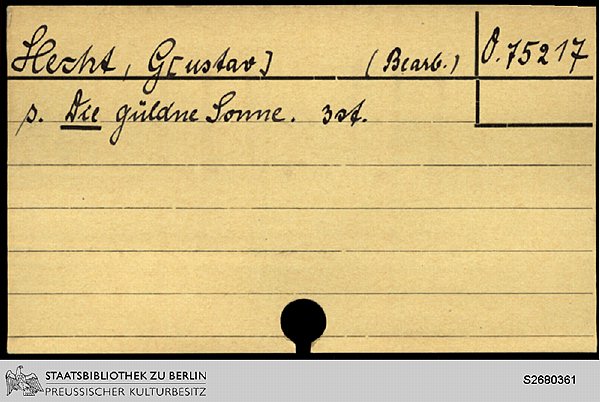 Hecht, G[ustav] (Bearb.) O. 75217
s. Die güldne Sonne. 3st.
STAATSBIBLIOTHEK ZU BERLIN
PREUSSISCHER KULTURBESITZ
S2680361